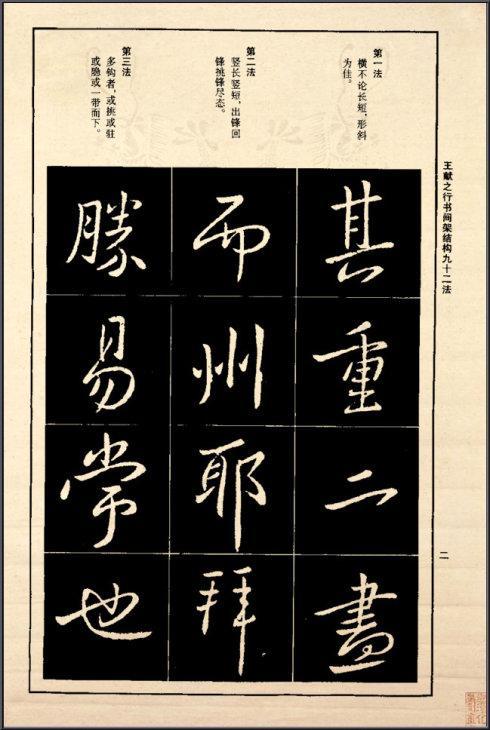 王献之行书间架结构九十二法
二
第一法
横不论长短，形斜
为佳。
第二法
竖长竖短，出锋回
锋挑锋尽态。
第三法
多钩者，或挑或驻
或隐或一带而下。
其重二畫
而州耶拜
勝易常也